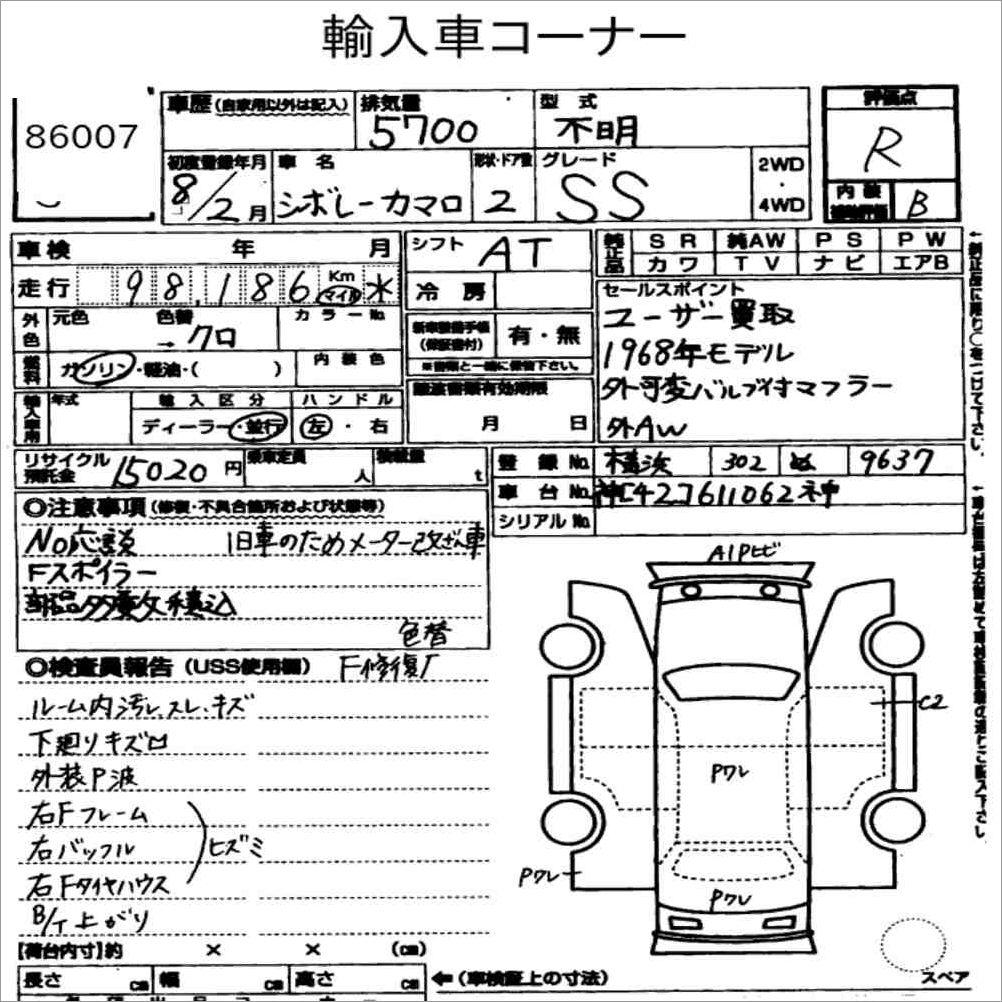 輸入車コーナー
86007
車歴(自家用以外は記入)
排気量
5700
型式
不明
評価点
R
初度登録年月
8/2月
車名
シボレーカマロ
形状・ドア数
2
グレード
SS
2WD
・
4WD
内装
補助評価
B
車検 年 月
走行 98,186 Km マイル
シフト AT
冷房
純正品
SR 純AW PS PW
カワ TV ナビ エアB
セールスポイント
ユーザー買取
1968年モデル
外可変バルブ付マフラー
外AW
外色
元色 色替 カラーNo.
→クロ
新車整備手帳
(保証書付)
有・無
※書類と一緒に保管下さい。
燃料
ガソリン・軽油・( )
内装色
譲渡書類有効期限
月 日
輸入車用
年式
輸入区分
ディーラー・並行
ハンドル
左・右
リサイクル
預託金
15020円
乗車定員
人
積載量
t
登録No. 横浜 302 ぬ 9637
車台No. 神[42]611062神
シリアルNo.
◎注意事項(修復・不具合箇所および状態等)
No応談 旧車のためメーター改ざん車
Fスポイラー
部品多数積込
色替
◎検査員報告(USS使用欄) F修復歴
ルーム内汚レ、スレ、キズ
下廻りキズロ
外装P波
右Fフレーム
右バッフル
右Fタイヤハウス
ヒズミ
B/T上がり
A1Pヒビ
C2
Pワレ
Pワレ
Pワレ
スペア
【荷台内寸】約 × × (cm)
長さ cm 幅 cm 高さ cm
←(車検証上の寸法)